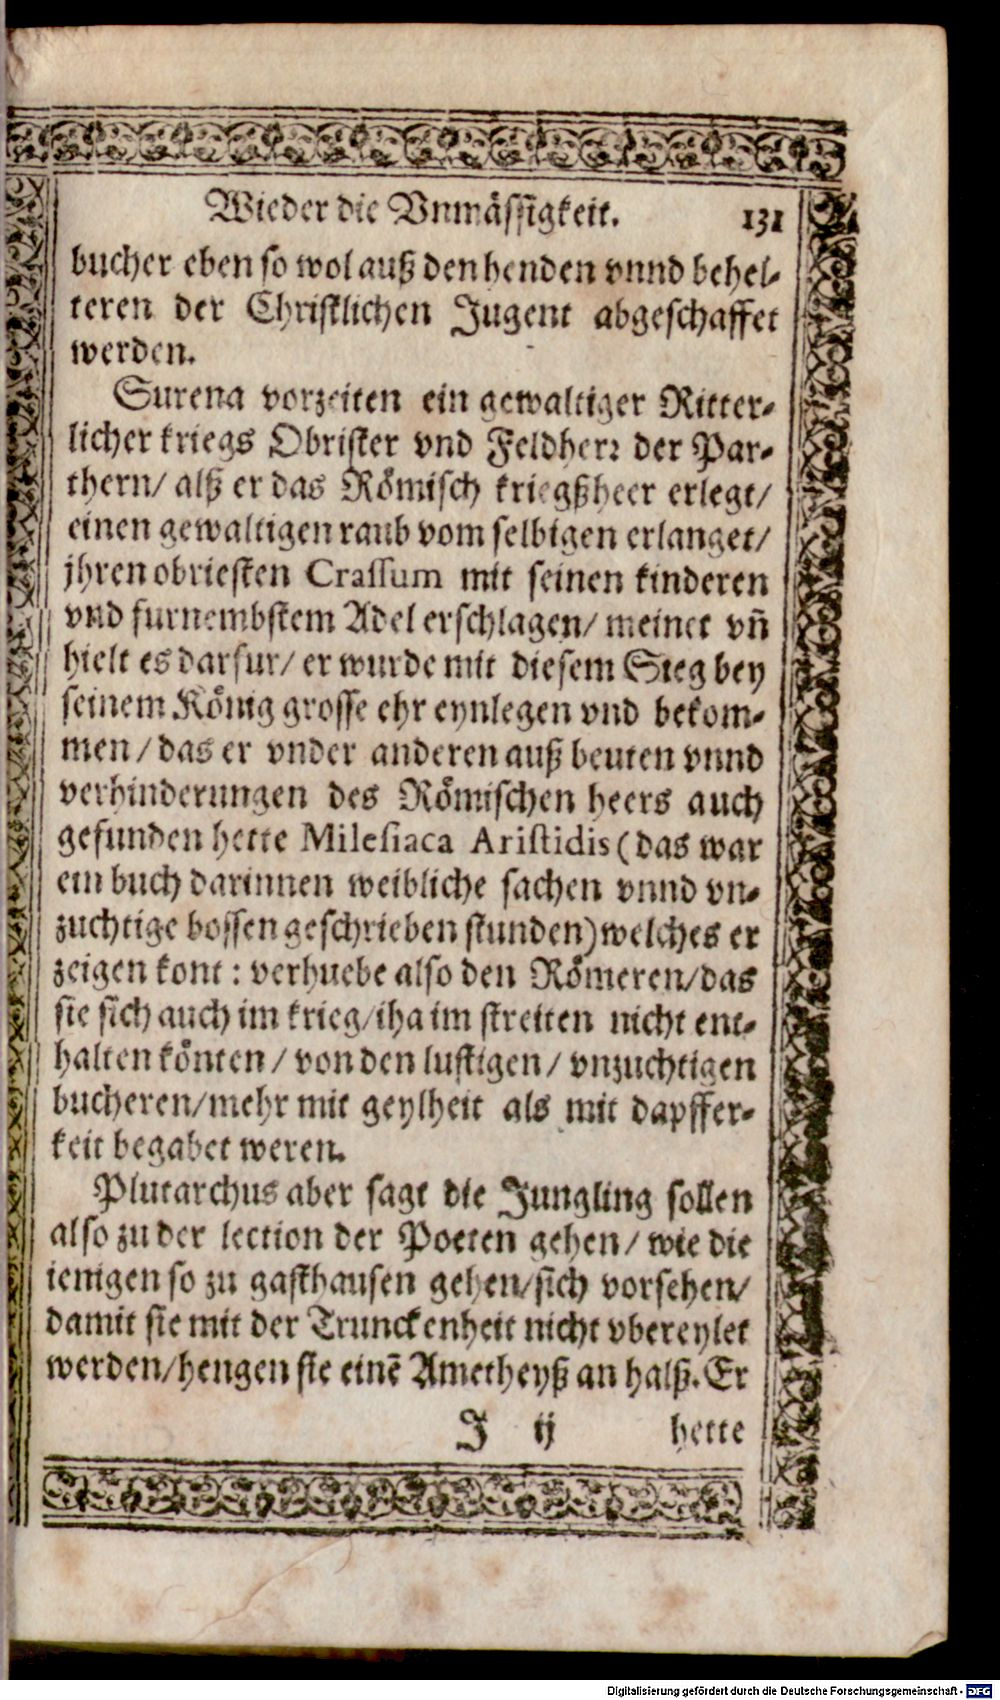 Wieder die Vnmässigkeit. 131
bucher eben so wol auß den henden vnnd behel-
teren der Christlichen Jugent abgeschaffet
werden.
Surena vorzeiten ein gewaltiger Ritter-
licher kriegs Obrister vnd Feldherr der Par-
thern/ alß er das Römisch kriegßheer erlegt/
einen gewaltigen raub vom selbigen erlanget/
jhren obriesten Crassum mit seinen kinderen
vnd furnembstem Adel erschlagen/ meinet vñ
hielt es darfur/ er wurde mit diesem Sieg bey
seinem König grosse ehr eynlegen vnd bekom-
men/ das er vnder anderen auß beuten vnnd
verhinderungen des Römischen heers auch
gefunden hette Milesiaca Aristidis (das war
ein buch darinnen weibliche sachen vnnd vn-
zuchtige bossen geschrieben stunden) welches er
zeigen kont: verhuebe also den Römeren/das
sie sich auch im krieg/iha im streiten nicht ent-
halten könten/ von den lustigen/ vnzuchtigen
bucheren/mehr mit geylheit als mit dapffer-
keit begabet weren.
Plutarchus aber sagt die Jungling sollen
also zu der lection der Poeten gehen/ wie die
ienigen so zu gasthausen gehen/sich vorsehen/
damit sie mit der Trunckenheit nicht vbereylet
werden/hengen sie einē Ametheyß an halß. Er
J ij hette
Digitalisierung gefördert durch die Deutsche Forschungsgemeinschaft - DFG